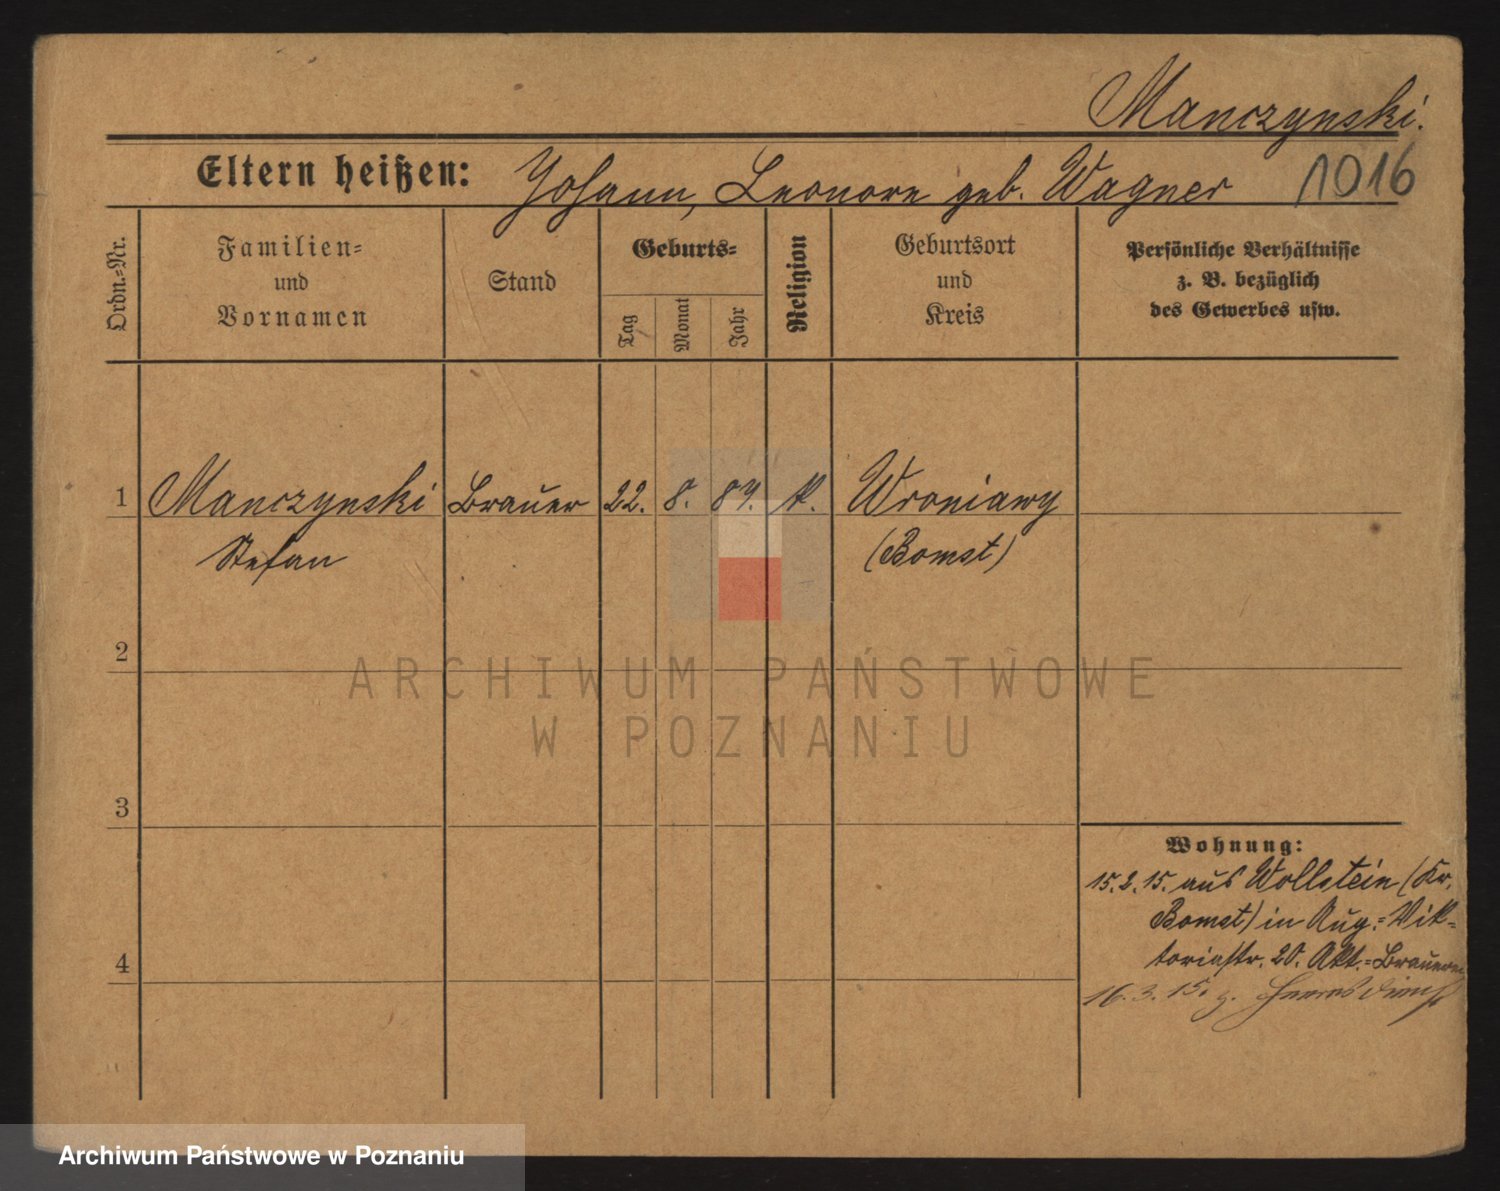 Manczynski.
Eltern heißen: Johann, Leonore geb. Wagner 1016
Ordn.=Nr.
Familien=
und
Vornamen
Stand
Geburts=
Tag
Monat
Jahr
Religion
Geburtsort
und
Kreis
Persönliche Verhältnisse
z. B. bezüglich
des Gewerbes usw.
1 Manczynski Brauer 22. 8. 89. k. Wroniawy
Stefan (Bomst)
2
ARCHIWUM PAŃSTWOWE
W POZNANIU
3
Wohnung:
15.2.15. aus Wollstein (Kr.
Bomst) in Aug.=Vik=
toriastr. 20. Akt.=Brauerei
4
16.3.15. z. Heeresdienst
Archiwum Państwowe w Poznaniu